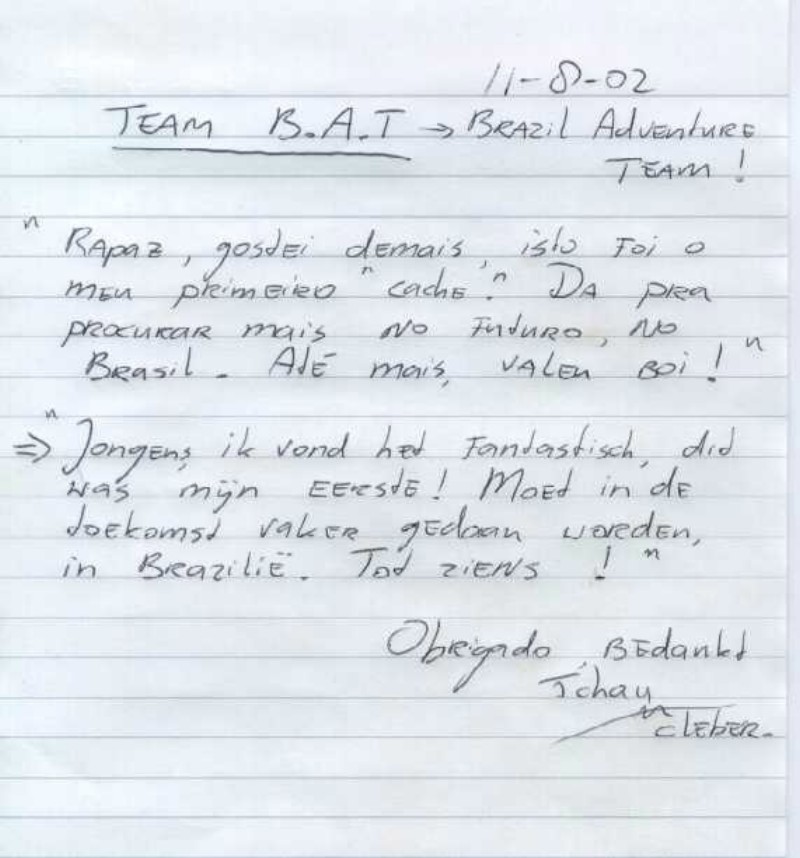 11-8-02
TEAM B.A.T → BRAZIL ADVENTURE
TEAM!
" RAPAZ, gostei demais, isto foi o
meu primeiro "cache". DA pra
procurar mais no futuro, no
Brasil. Até mais, valeu boi! "
⇒ " Jongens, ik vond het fantastisch, dit
was mijn eerste! Moet in de
toekomst vaker gedaan worden,
in Brazilië. Tot ziens ! "
Obrigado, Bedankt
Tchau
"Cleber.